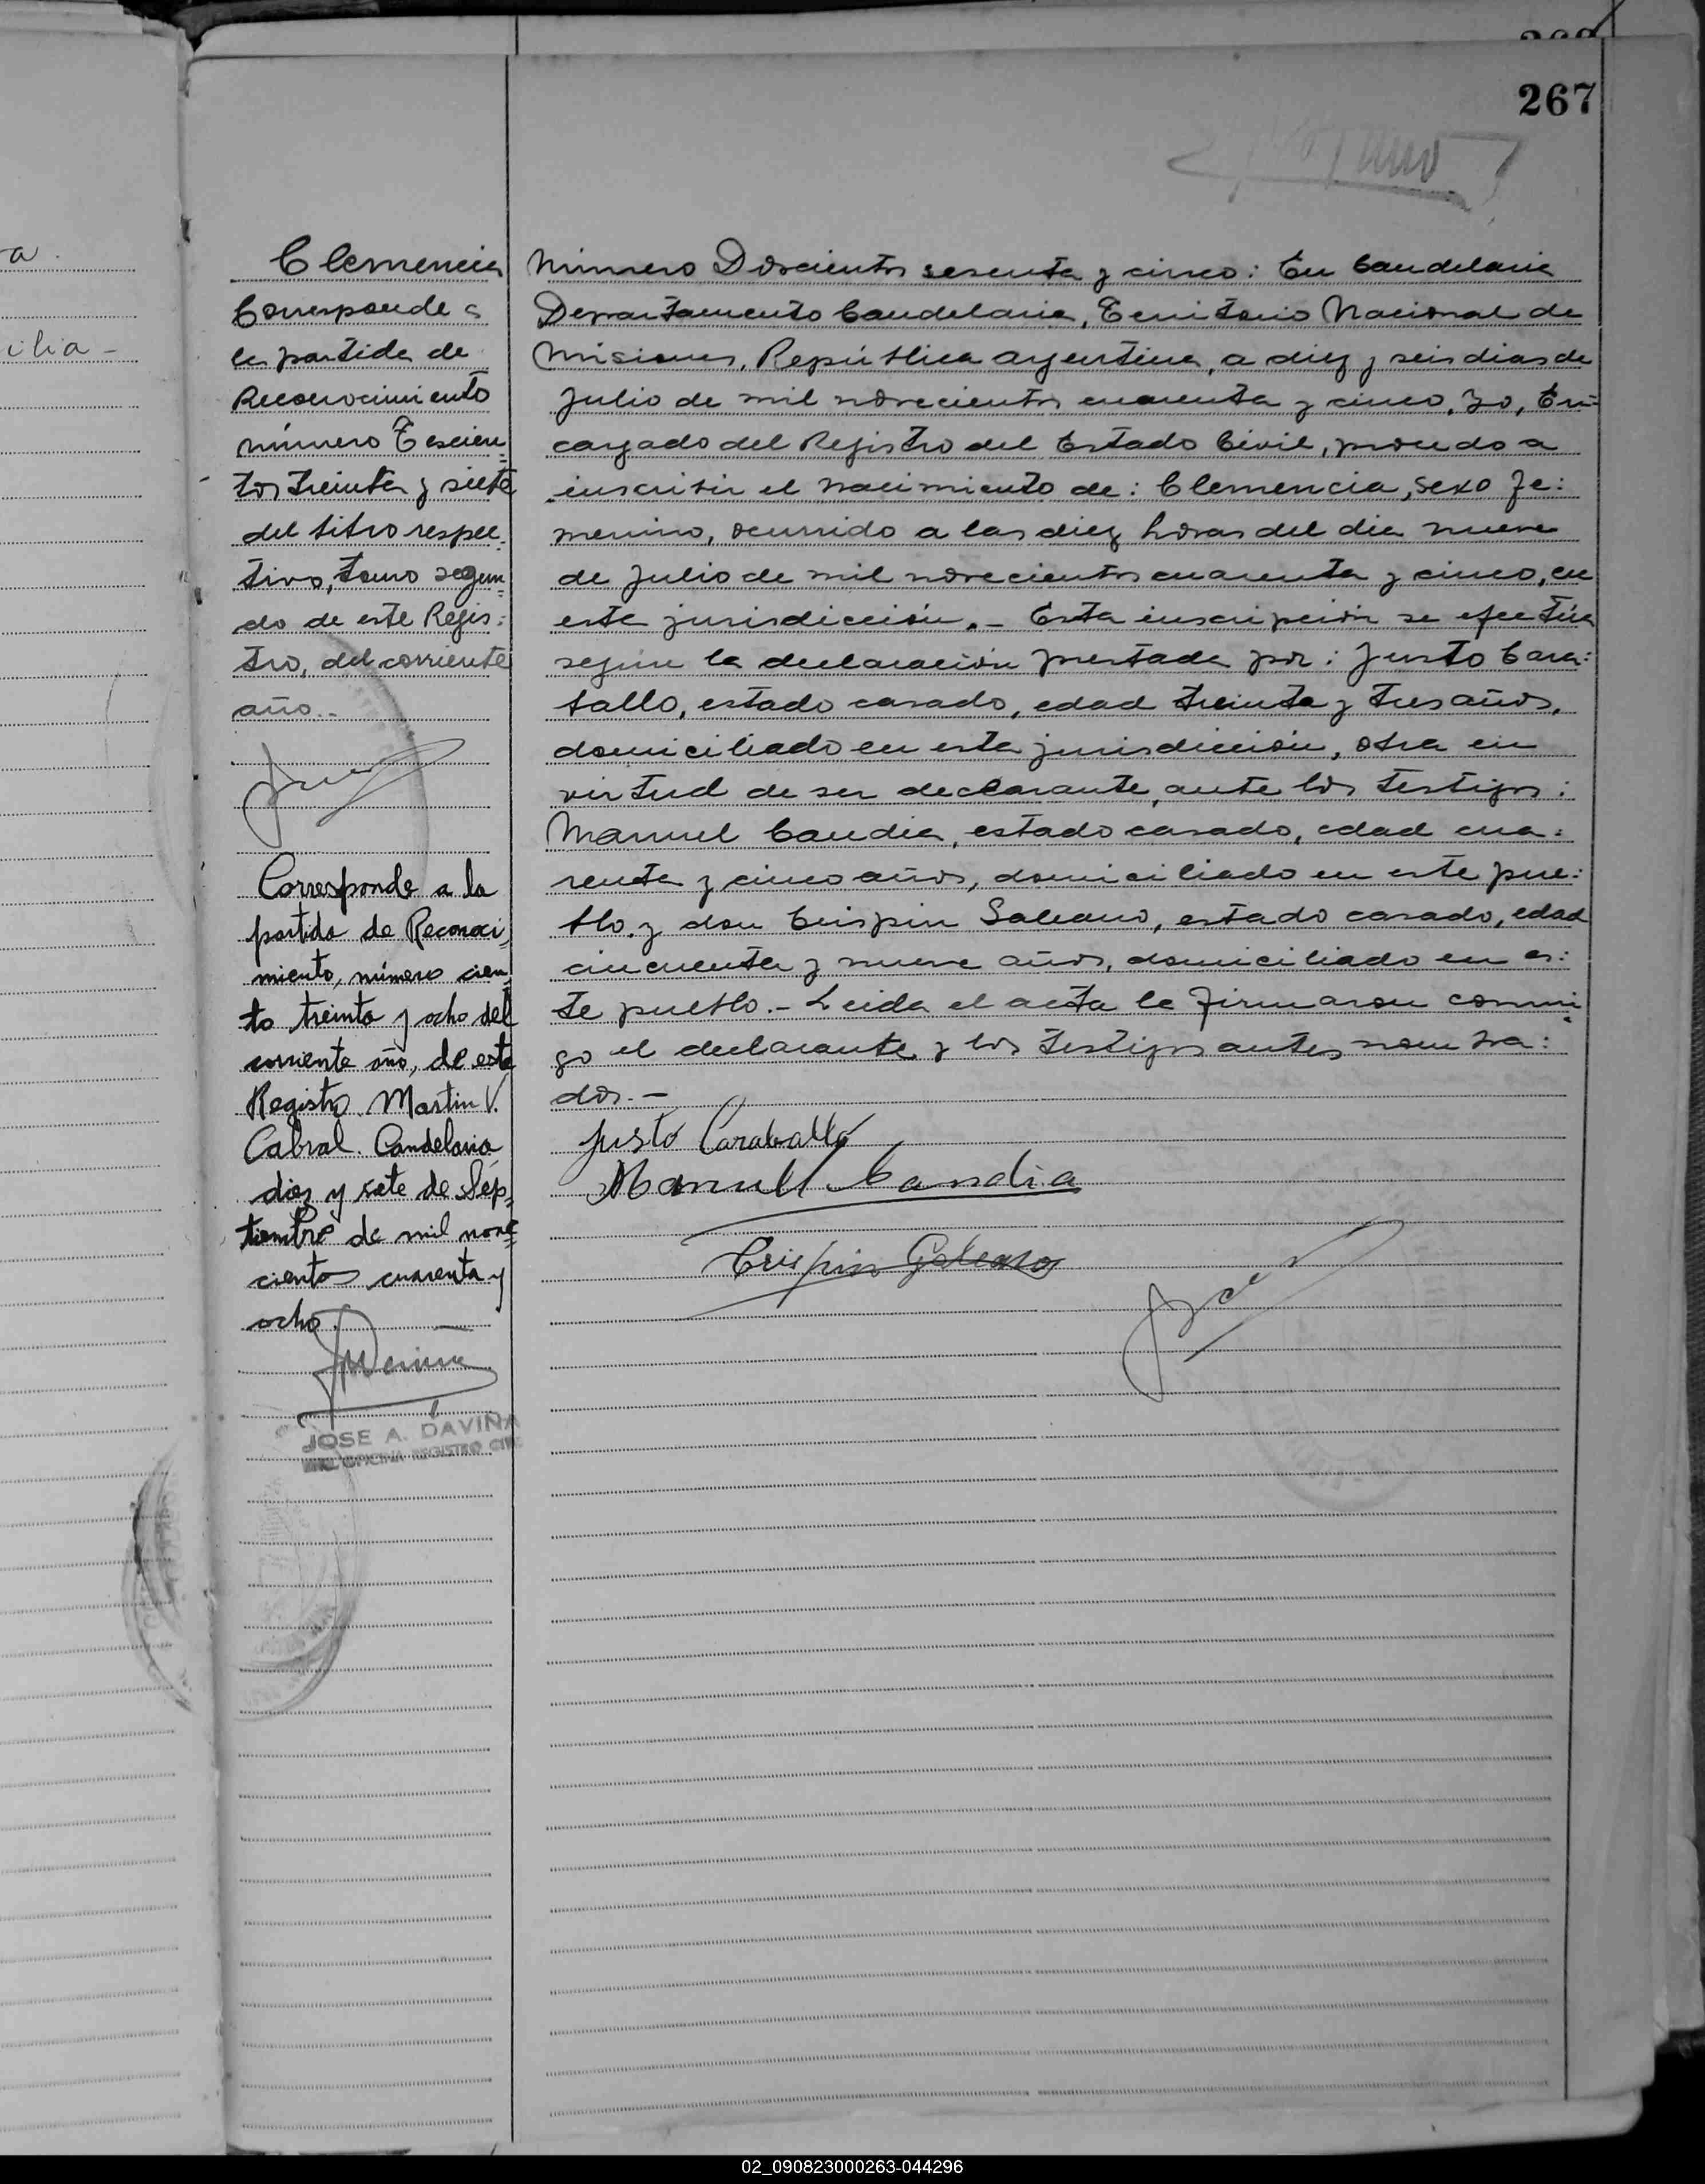 267
a.
ilia -
Clemencia
Corresponde a
la partida de
Reconocimiento
número Trescien=
tos treinta y siete
del libro respec=
tivo, tomo segun=
do de este Regis=
tro, del corriente
año.-
Corresponde a la
partida de Reconoci=
miento, número cien=
to treinta y ocho del
corriente año, de este
Registro. Martin V.
Cabral. Candelaria
diez y siete de Sep=
tiembre de mil nove=
cientos cuarenta y
ocho.
JOSE A. DAVIÑA
OFICINA REGISTRO CIVIL
Número Doscientos sesenta y cinco: En Candelaria
Departamento Candelaria, Territorio Nacional de
Misiones, República Argentina, a diez y seis dias de
Julio de mil novecientos cuarenta y cinco, Yo, En=
cargado del Registro del Estado Civil, procedo a
inscribir el nacimiento de: Clemencia, sexo fe=
menino, ocurrido a las diez horas del dia nueve
de Julio de mil novecientos cuarenta y cinco, en
esta jurisdicción.- Esta inscripción se efectúa
según la declaración prestada por: Justo Cara=
ballo, estado casado, edad treinta y tres años,
domiciliado en esta jurisdicción, obra en
virtud de ser declarante, ante los testigos:
Manuel Candia, estado casado, edad cua=
renta y cinco años, domiciliado en este pue=
blo, y don Crispin Galeano, estado casado, edad
cincuenta y nueve años, domiciliado en es=
te pueblo.- Leida el acta la firmaron conmi=
go el declarante y los testigos antes nombra=
dos.-
Justo Caraballo
Manuel Candia
Crispin Galeano
02_090823000263-044296